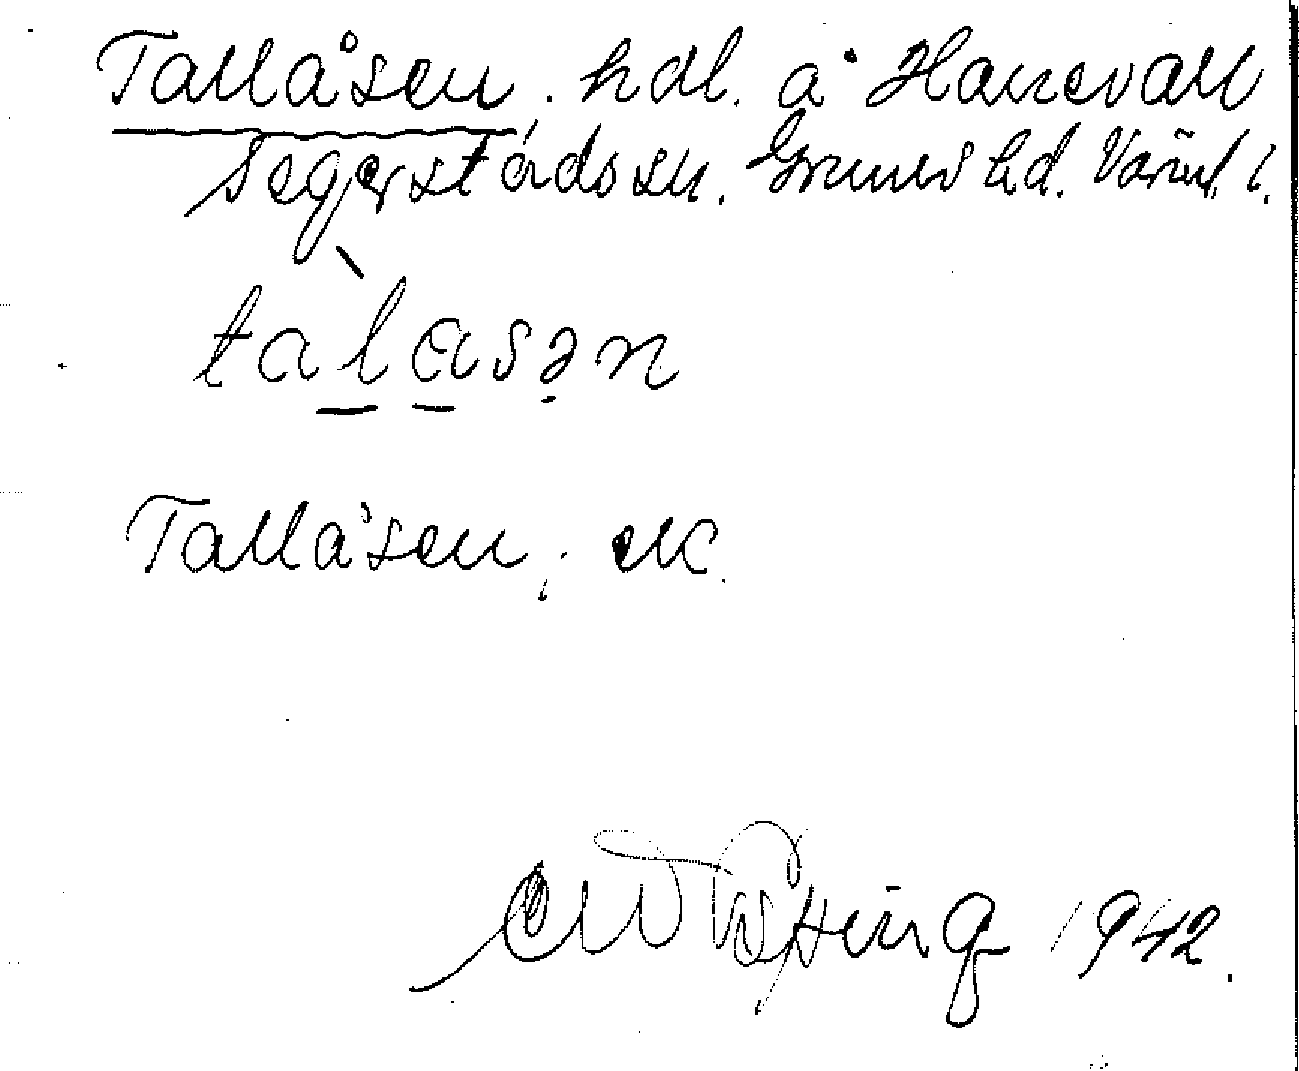 Tallåsen. hdl. å Hanevall
Segerstads sn. Grums hd. Värml.
talasən
Tallåsen, ek.
1942.